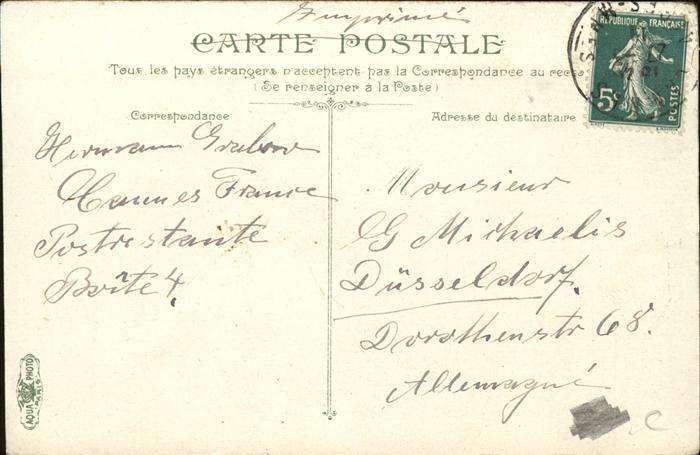 Imprimé
CARTE POSTALE
Tous les pays étrangers n'acceptent pas la Correspondance au recto
(Se renseigner à la Poste)
RÉPUBLIQUE FRANÇAISE
5c
POSTES
Correspondance
Hermann Grabow
Cannes France
Postrestante
Boîte 4.
Adresse du destinataire
Monsieur
G Michaelis
Düsseldorf.
Dorothenstr 68.
Allemagne
AQUA PHOTO
PARIS
C